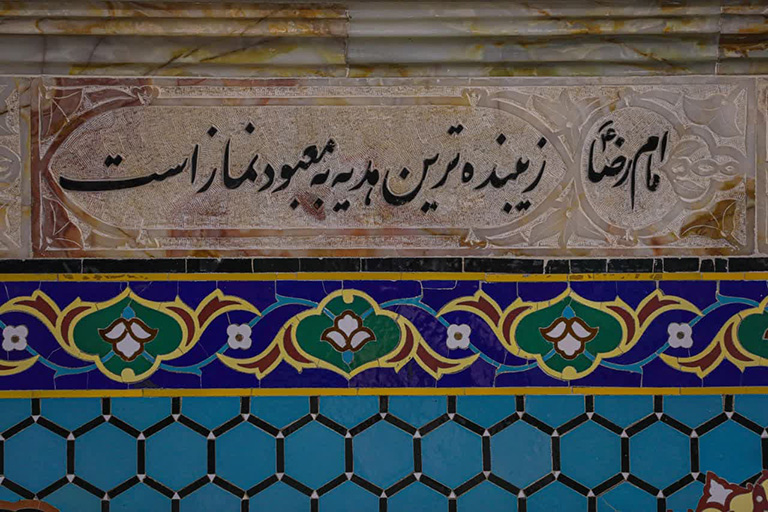 امام رضا ع
زیبنده ترین هدیه به معبود نماز است